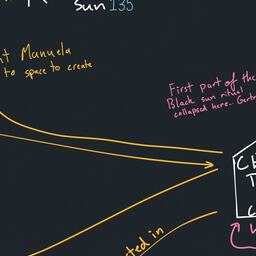 sun 135
nt Manuela
to space to create
First part of the
Black sun ritual
collapsed here.. Gertr
ted in